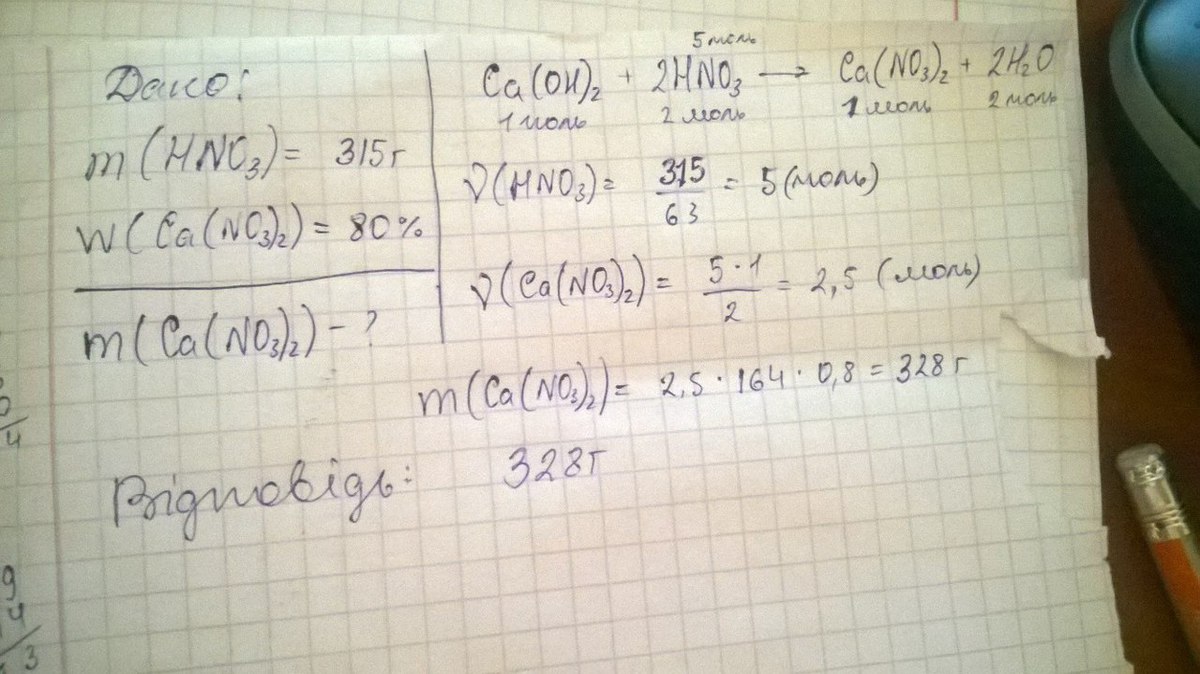 Дано:
m(HNO₃) = 315г
W(Ca(NO₃)₂) = 80%
m(Ca(NO₃)₂) - ?
5 моль
Ca(OH)₂ + 2HNO₃ → Ca(NO₃)₂ + 2H₂O
1 моль 2 моль 1 моль 2 моль
ν(HNO₃) = 315/63 = 5 (моль)
ν(Ca(NO₃)₂) = 5·1/2 = 2,5 (моль)
m(Ca(NO₃)₂) = 2,5 · 164 · 0,8 = 328 г
Відповідь: 328г
4
9
4
3